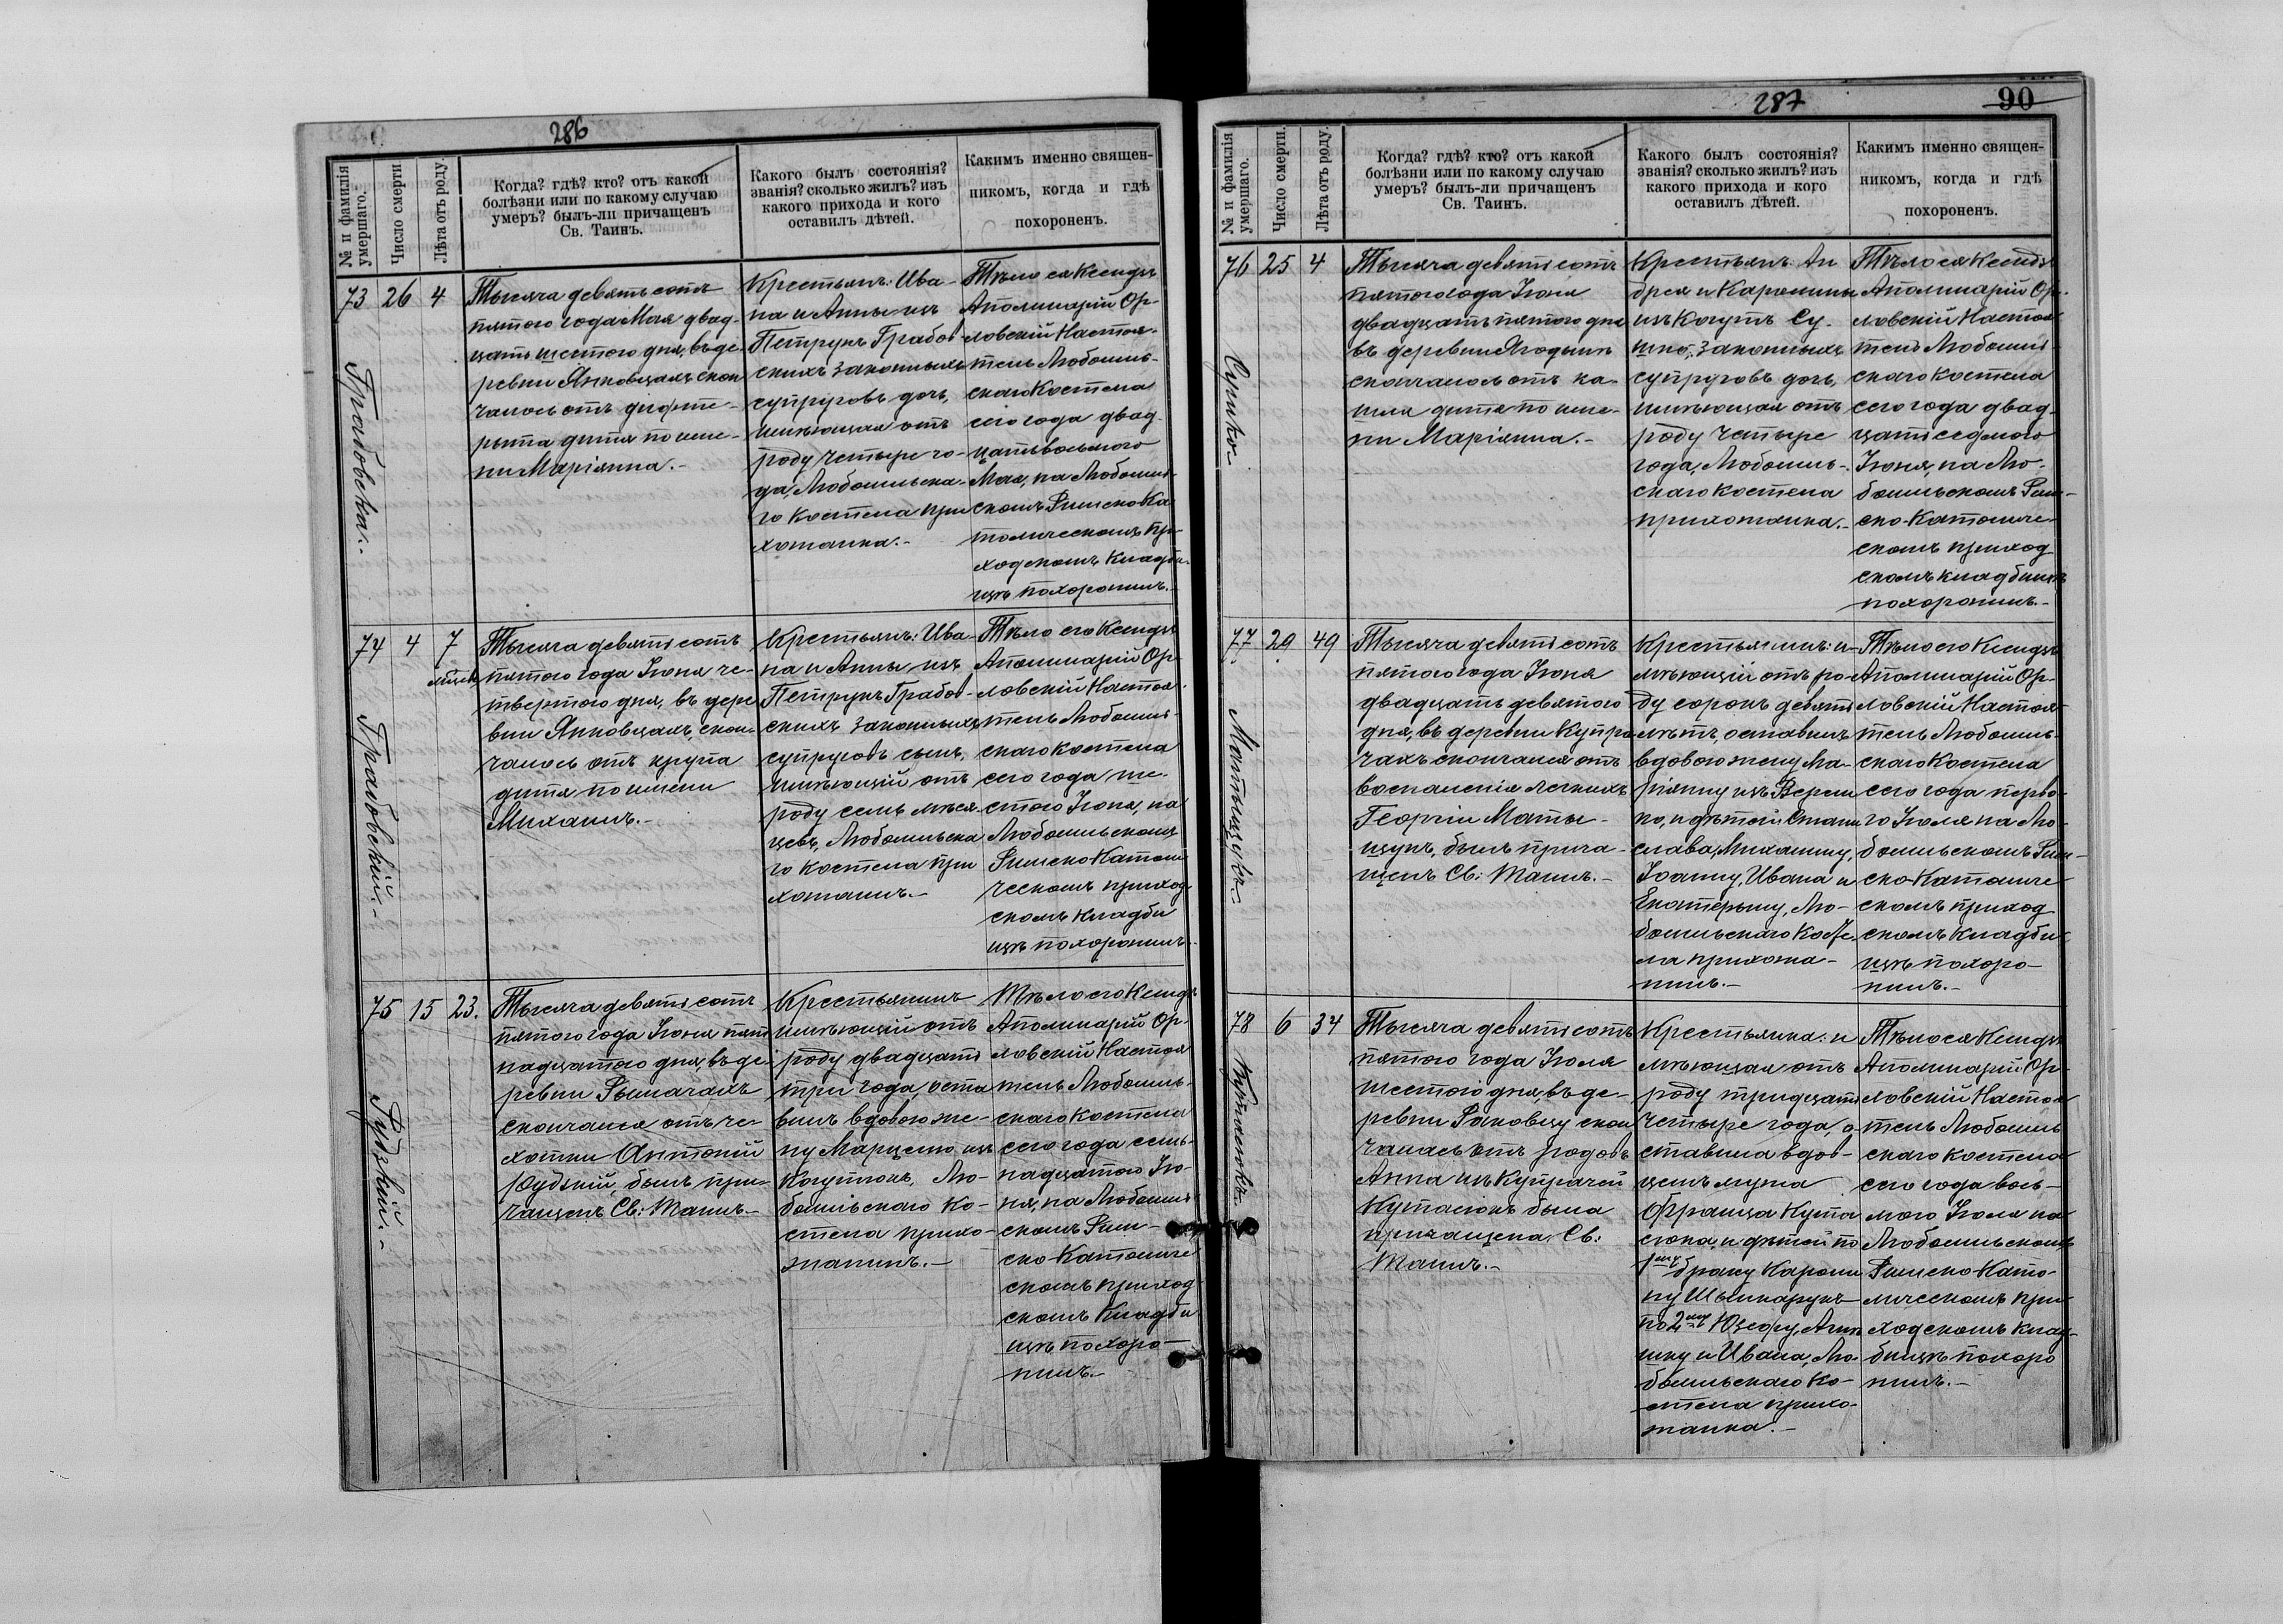 286
№ и фамилія умершаго.
Число смерти
Лѣта отъ роду.
Когда? гдѣ? кто? отъ какой
болѣзни или по какому случаю
умеръ? былъ-ли причащенъ
Св. Таинъ.
Какого былъ состоянія?
званія? сколько жилъ? изъ
какого прихода и кого
оставилъ дѣтей.
Какимъ именно священ-
никомъ, когда и гдѣ
похороненъ.
73
Грабовска.-
26
4
Тысяча девятьсотъ
пятого года Мая двад-
цать шестого дня, въ де-
ревни Янковцахъ скон
чалось отъ дифте-
рыта дитя по име-
ни Маріянна.-
Крестьянъ: Ива-
на и Анны изъ
Петрукъ Грабов-
скихъ законныхъ
супруговъ дочь,
имѣющая отъ
роду четыре го-
да, Любомльска-
го костела при
хожанка.-
Тѣло ея Ксендзъ
Аполинарій Ор-
ловскій Настоя-
тель Любомль-
скаго Костела
сего года двад-
цать восьмого
Мая, на Любомль-
скомъ Римско Ка
толическомъ при-
ходскомъ кладби-
щѣ похоронилъ.-
74
Грабовскій.-
4
7
мѣсяц.
Тысяча девятьсотъ
пятого года Іюня че-
твертого дня, въ дере
вни Янковцахъ, скон-
чалось отъ крупа
дитя по имени
Михаилъ.-
Крестьянъ: Ива-
на и Анны изъ
Петрукъ Грабов-
скихъ законныхъ
супруговъ сынъ,
имѣющій отъ
роду семь мѣся
цевъ, Любомльска
го костела при
хожанинъ.-
Тѣло его Ксендзъ
Аполинарій Ор-
ловскій Настоя-
тель Любомль-
скаго костела
сего года ше-
стого Іюня, на
Любомльскомъ
Римско Католи
ческомъ приход
скомъ кладби
щѣ похоронилъ.-
75
Рудзкій.-
15
23.
Тысяча девятьсотъ
пятого года Іюня пят
надцатого дня, въ де-
ревни Рымачахъ
скончался отъ че-
хотки Антоній
Рудзкій, былъ при-
чащенъ Св: Таинъ.-
Крестьянинъ
имѣющій отъ
роду двадцать
три года, оста
вилъ вдовою же-
ну Марцелю изъ
Когутюкъ, Лю-
бомльскаго ко-
стела прихо-
жанинъ.-
Тѣло его Ксендзъ
Аполинарій Ор-
ловскій Настоя
тель Любомль-
скаго костела
сего года семь-
надцатого Ію-
ня, на Любомль-
скомъ Рим-
ско Католиче
скомъ приход
скомъ Кладби
щѣ похоро-
нилъ.-
287
90
№ и фамилія умершаго.
Число смерти.
Лѣта отъ роду.
Когда? гдѣ? кто? отъ какой
болѣзни или по какому случаю
умеръ? былъ-ли причащенъ
Св. Таинъ.
Какого былъ состоянія?
званія? сколько жилъ? изъ
какого прихода и кого
оставилъ дѣтей.
Какимъ именно священ-
никомъ, когда и гдѣ
похороненъ.
76
25
4
Тысяча девятьсотъ
пятого года Іюня
двадцать пятого дня
въ деревни Ягодыни
скончалось отъ ка-
шля дитя по име-
ни Маріянна.-
Крестьянъ Ан
дрея и Каролины
изъ Когутъ Су-
шко, законныхъ
супруговъ дочь,
имѣющая отъ
роду четыре
года, Любомль-
скаго костела
прихожанка.-
Тѣло ея Ксендзъ
Аполинарій Ор-
ловскій Настоя
тель Любомль-
скаго костела
сего года двад-
цать седмого
Іюня, на Лю-
бомльскомъ Рим-
ско-Католиче-
скомъ приход
скомъ кладбищѣ
похоронилъ.-
77
Матыщукъ.-
29
49
Тысяча девятьсотъ
пятого года Іюня
двадцать девятого
дня, въ деревни Купра
чахъ скончался отъ
воспаленія легкихъ
Георгій Маты-
щукъ, былъ прича-
щенъ Св: Таинъ.-
Крестьянинъ: и-
мѣющій отъ ро-
ду сорокъ девять
лѣтъ, оставилъ
вдовою жену Ма-
ріянну изъ Верем
ко, и дѣтей: Стани
слава, Михалину,
Іоанну, Ивана и
Екатерыну, Лю-
бомльскаго косте
ла прихожа-
нинъ.-
Тѣло его Ксендзъ
Аполинарій Ор-
ловскій Настоя
тель Любомль-
скаго Костела
сего года перво-
го Іюля на Лю-
бомльскомъ Рим-
ско-Католиче
скомъ приход
скомъ кладби-
щѣ похоро-
нилъ.-
78
6
34
Тысяча девятьсотъ
пятого года Іюля
шестого дня, въ де-
ревни Раковцу скон
чалась отъ родовъ
Анна изъ Купрачей
Куталюкъ была
причащена Св:
Таинъ.-
Крестьянка: и
мѣющая отъ
роду тридцать
четыре года, о-
ставила вдов-
цемъ мужа
Франца Кута
люка, и дѣтей по
1му браку Кароли
ну Шынкарукъ
по 2му Юзефу, Анто
нину и Ивана, Лю-
бомльскаго ко-
стела прихо-
жанка.-
Тѣло ея Ксендзъ
Аполинарій Ор-
ловскій Настоя
тель Любомль
скаго костела
сего года вось-
мого Іюля на
Любомльскомъ
Римско-Като-
лическомъ при-
ходскомъ клад-
бищѣ похоро
нилъ.-